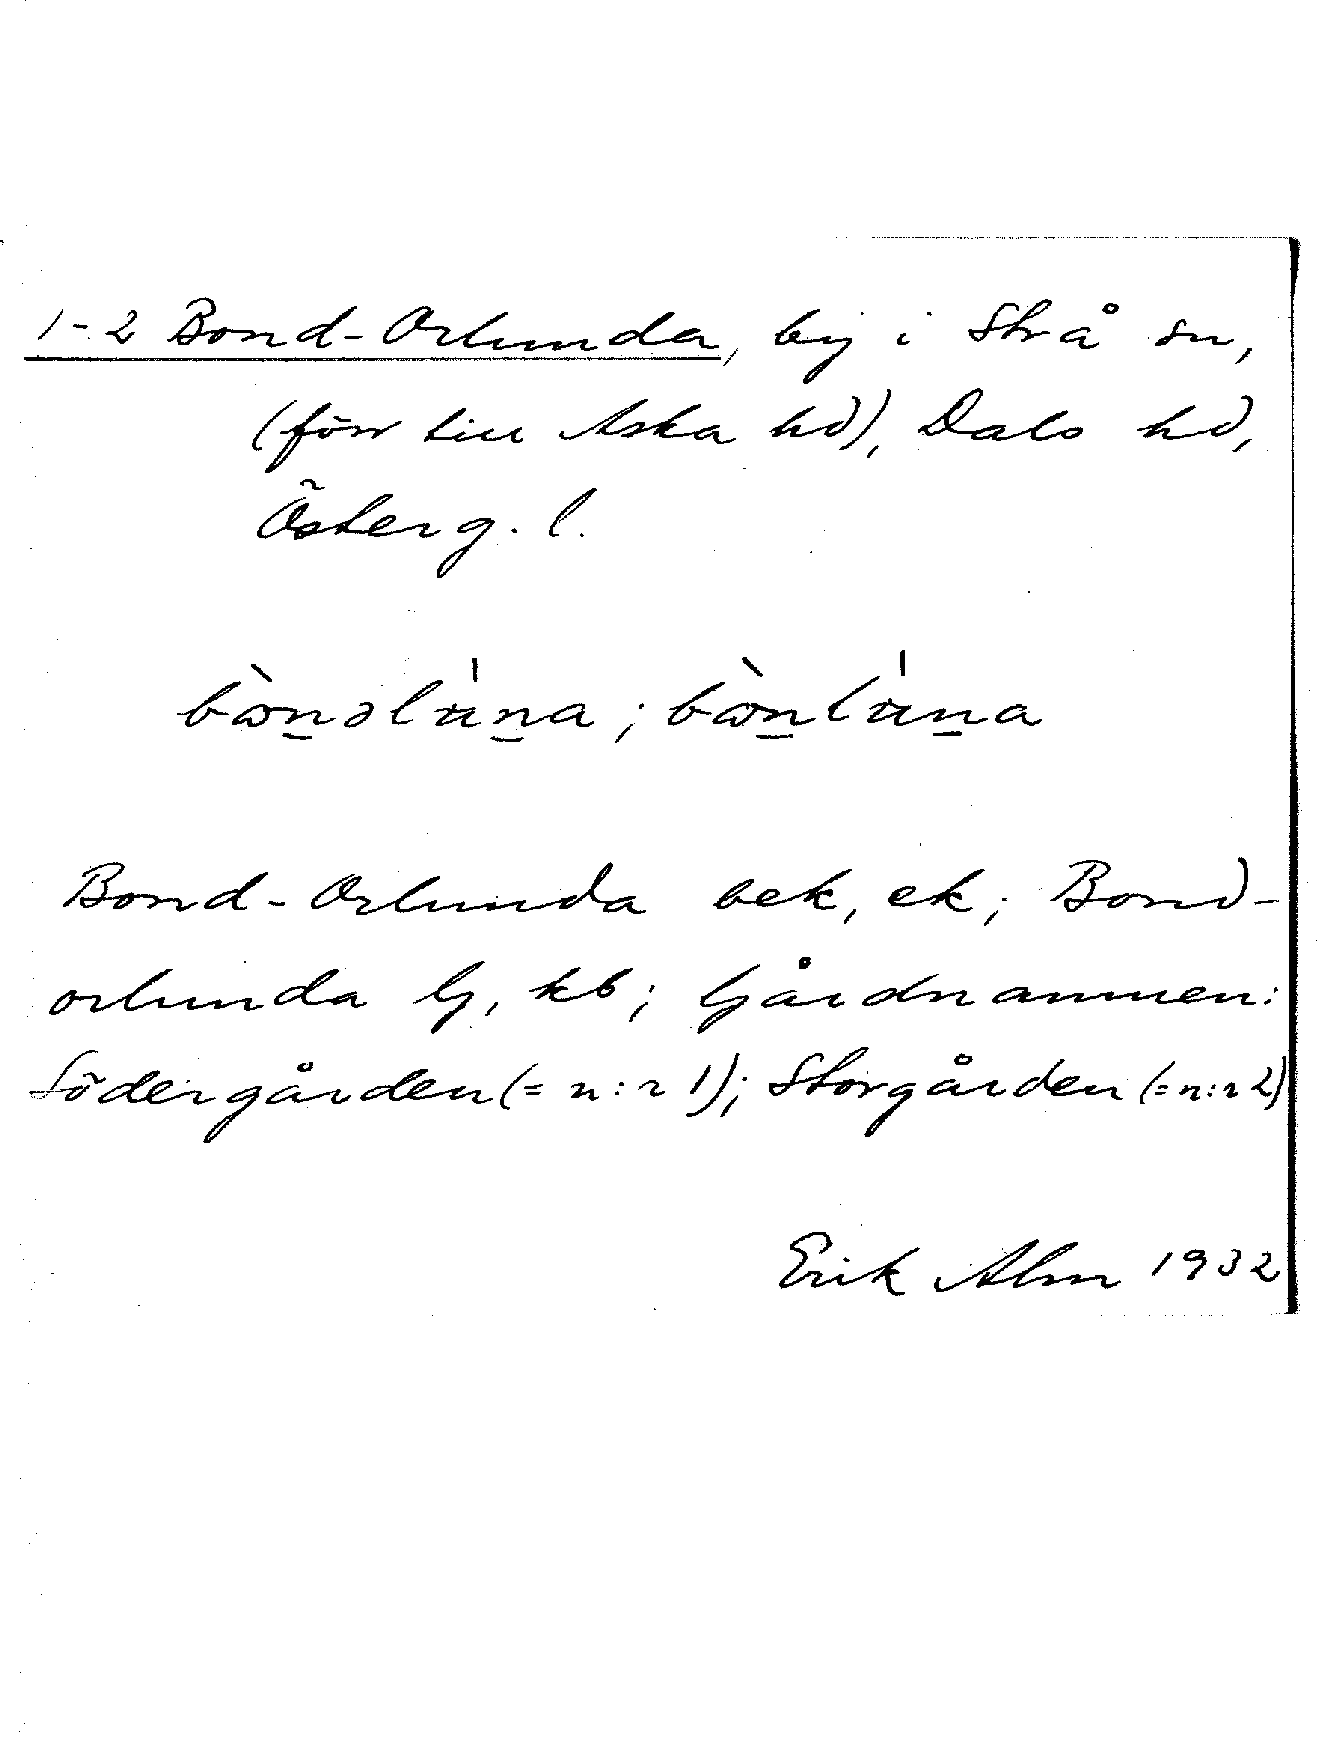 1-2 Bond-Orlunda, by i Strå sn,
(förr till Aska hd), Dals hd,
Österg. l.
bònəlùna ; bònlùna
Bond-Orlunda bek, ek; Bond-
orlunda lj, kb; Gårdnamnen:
Södergården (= n:r 1); Storgården (= n:r 2)
Erik Alm 1932